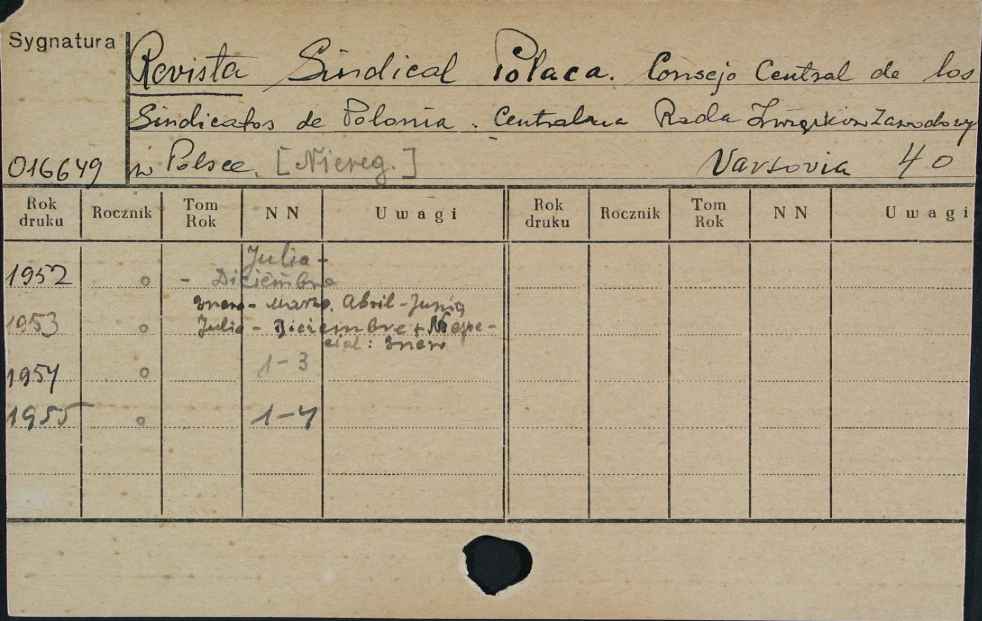 Sygnatura
Revista Sindical Polaca. Consejo Central de los
Sindicatos de Polonia. Centralna Rada Związków Zawodowy
016649 w Polsce. [Niereg.] Varsovia 40
Rok druku Rocznik Tom Rok NN Uwagi Rok druku Rocznik Tom Rok NN Uwagi
Julio -
1952 o - Diciembre
Enero - marzo, Abril - Junio
1953 o Julio - Diciembre + N espe-
cial: Enero
1954 o 1-3
1955 o 1-4